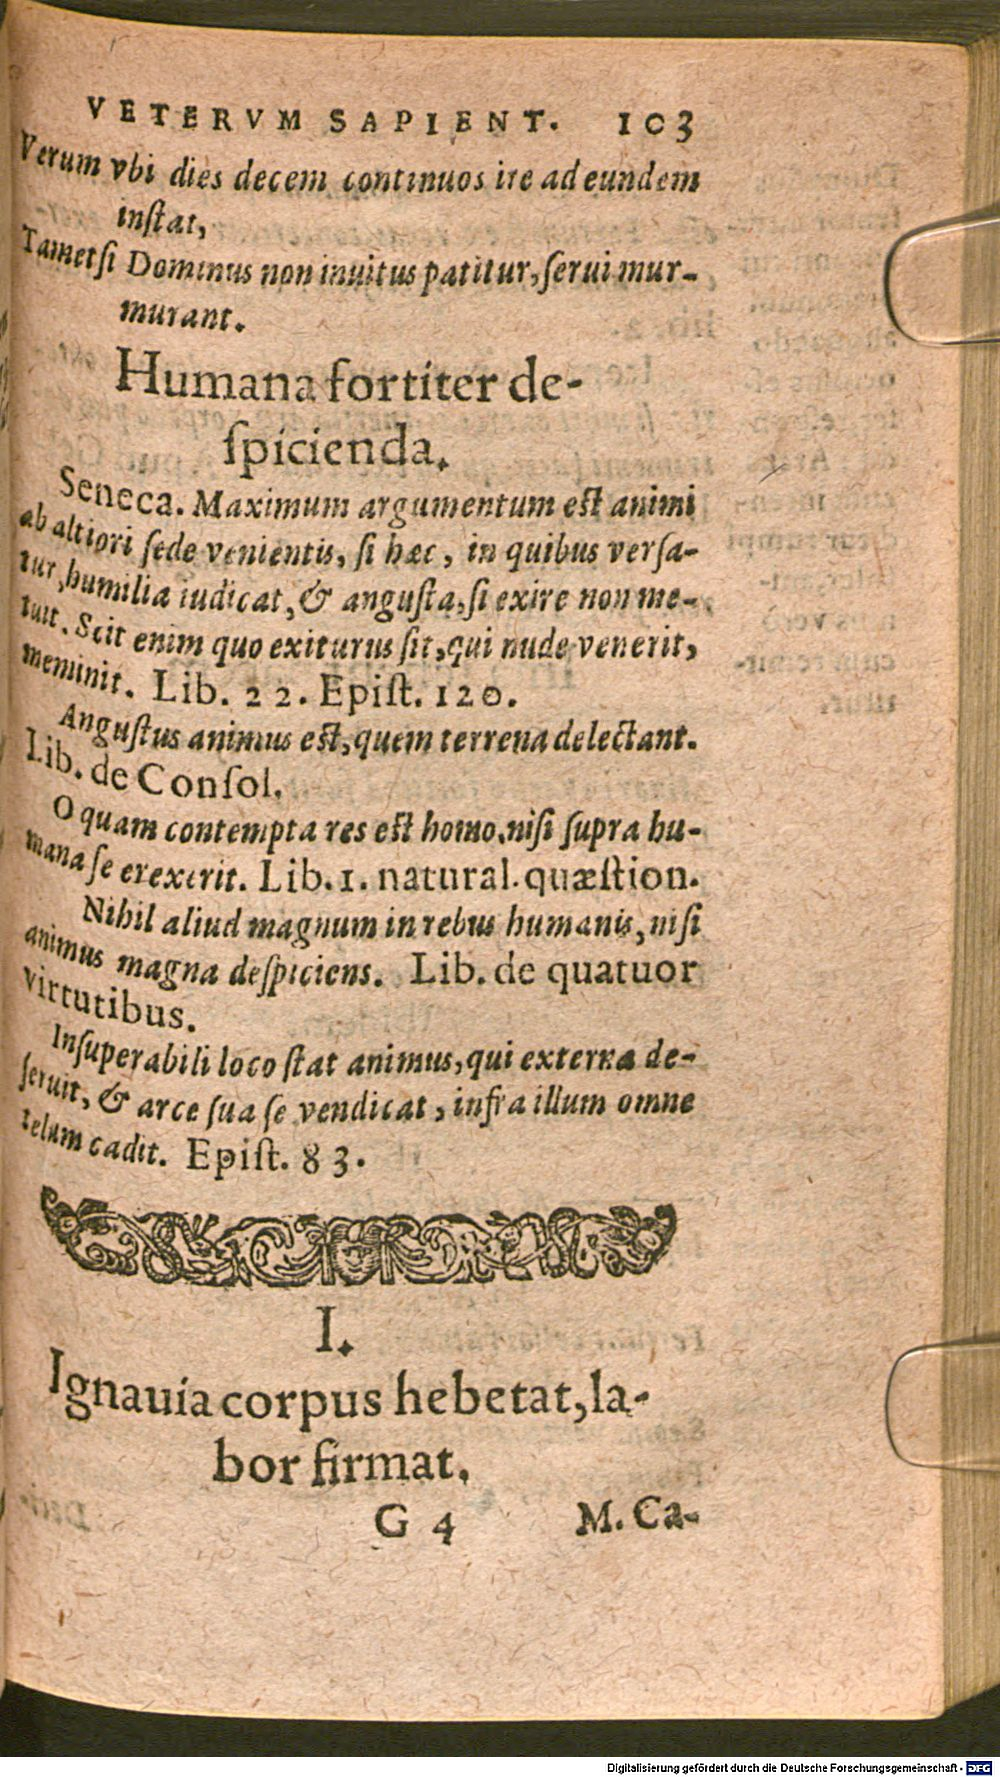 VETERVM SAPIENT. 103
Verum vbi dies decem continuos ire ad eundem
inſtat,
Tametſi Dominus non inuitus patitur, ſerui mur-
murant.
Humana fortiter de-
ſpicienda.
Seneca. Maximum argumentum eſt animi
ab altiori ſede venientis, ſi hæc, in quibus verſa-
tur, humilia iudicat, & anguſta, ſi exire non me-
tuit. Scit enim quo exiturus ſit, qui nude venerit,
meminit. Lib. 22. Epiſt. 120.
Anguſtus animus eſt, quem terrena delectant.
Lib. de Conſol.
O quam contempta res eſt homo, niſi ſupra hu-
mana ſe erexerit. Lib. 1. natural. quæſtion.
Nihil aliud magnum in rebus humanis, niſi
animus magna deſpiciens. Lib. de quatuor
virtutibus.
Inſuperabili loco ſtat animus, qui externa de-
ſeruit, & arce ſua ſe vendicat, infra illum omne
telum cadit. Epiſt. 83.
I.
Ignauia corpus hebetat, la-
bor firmat.
G 4 M. Ca-
Digitalisierung gefördert durch die Deutsche Forschungsgemeinschaft - DFG